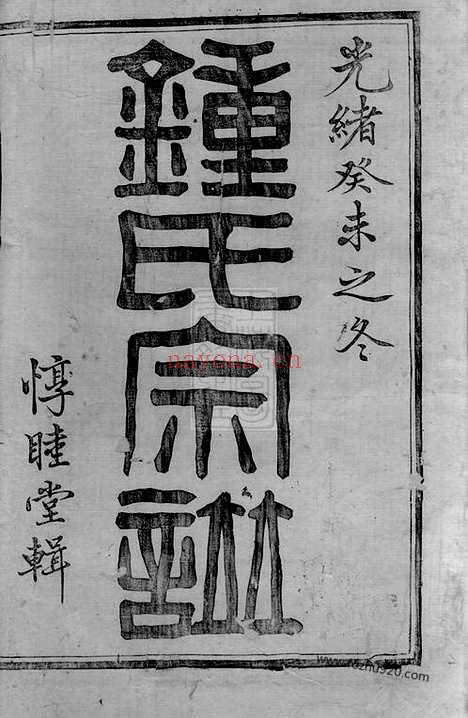 光緒癸未之冬
鍾氏宗譜
惇睦堂輯
nayona.cn
www.fozhu920.com